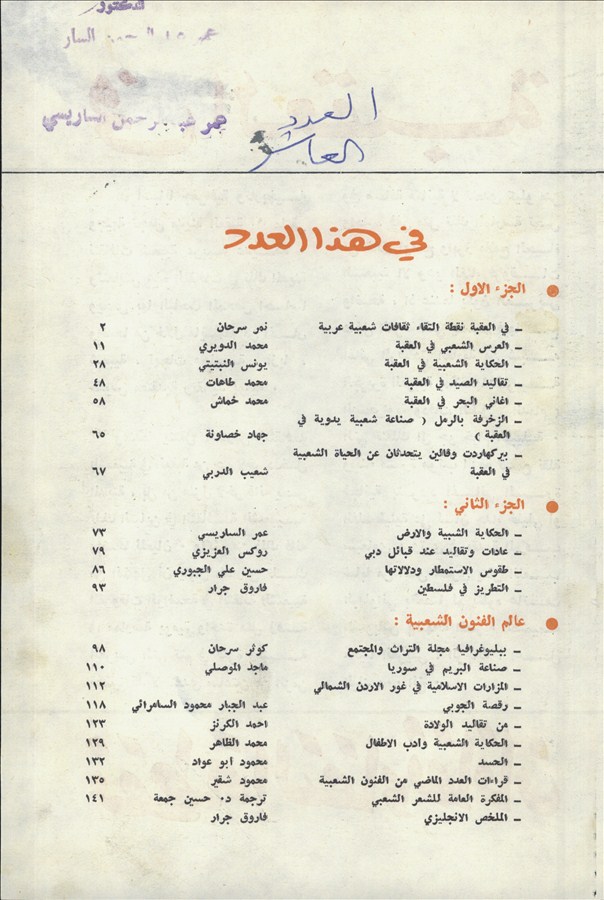 الدكتور
عمر عبد الرحمن السار
عمر عبد الرحمن الساريسي
العدد
العاشر
في هذا العدد
الجزء الاول :
ـ في العقبة نقطة التقاء ثقافات شعبية عربية نمر سرحان ٢
ـ العرس الشعبي في العقبة محمد الدويري ١١
ـ الحكاية الشعبية في العقبة يونس النبتيتي ٢٨
ـ تقاليد الصيد في العقبة محمد طاهات ٤٨
ـ اغاني البحر في العقبة محمد خماش ٥٨
ـ الزخرفة بالرمل ( صناعة شعبية يدوية في
العقبة ) جهاد خصاونة ٦٥
ـ بيركهاردت وفالين يتحدثان عن الحياة الشعبية
في العقبة شعيب الدربي ٦٧
الجزء الثاني :
ـ الحكاية الشبية والارض عمر الساريسي ٧٣
ـ عادات وتقاليد عند قبائل دبي روكس العزيزي ٧٩
ـ طقوس الاستمطار ودلالاتها حسين علي الجبوري ٨٦
ـ التطريز في فلسطين فاروق جرار ٩٣
عالم الفنون الشعبية :
ـ ببليوغرافيا مجلة التراث والمجتمع كوثر سرحان ٩٨
ـ صناعة البريم في سوريا ماجد الموصلي ١١٠
ـ المزارات الاسلامية في غور الاردن الشمالي ١١٢
ـ رقصة الجوبي عبد الجبار محمود السامرائي ١١٨
ـ من تقاليد الولادة احمد الكرنز ١٢٣
ـ الحكاية الشعبية وأدب الاطفال محمد الظاهر ١٢٩
ـ الحسد محمود ابو عواد ١٣٢
ـ قراءات العدد الماضي من الفنون الشعبية محمود شقير ١٣٥
ـ المفكرة العامة للشعر الشعبي ترجمة د٠ حسين جمعة ١٤١
ـ الملخص الانجليزي فاروق جرار